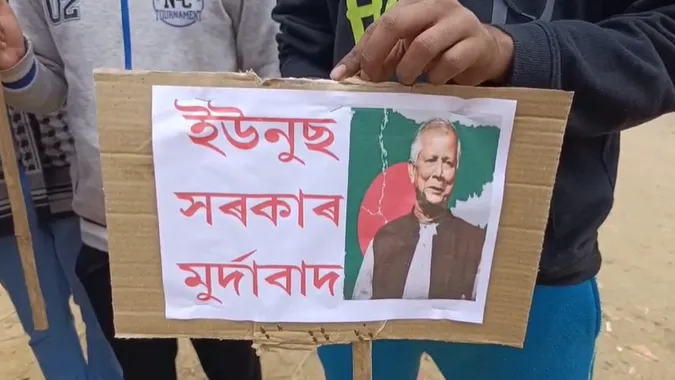 N-C
02
TOURNAMENT
ইউনুছ
সৰকাৰ
মুৰ্দাবাদ